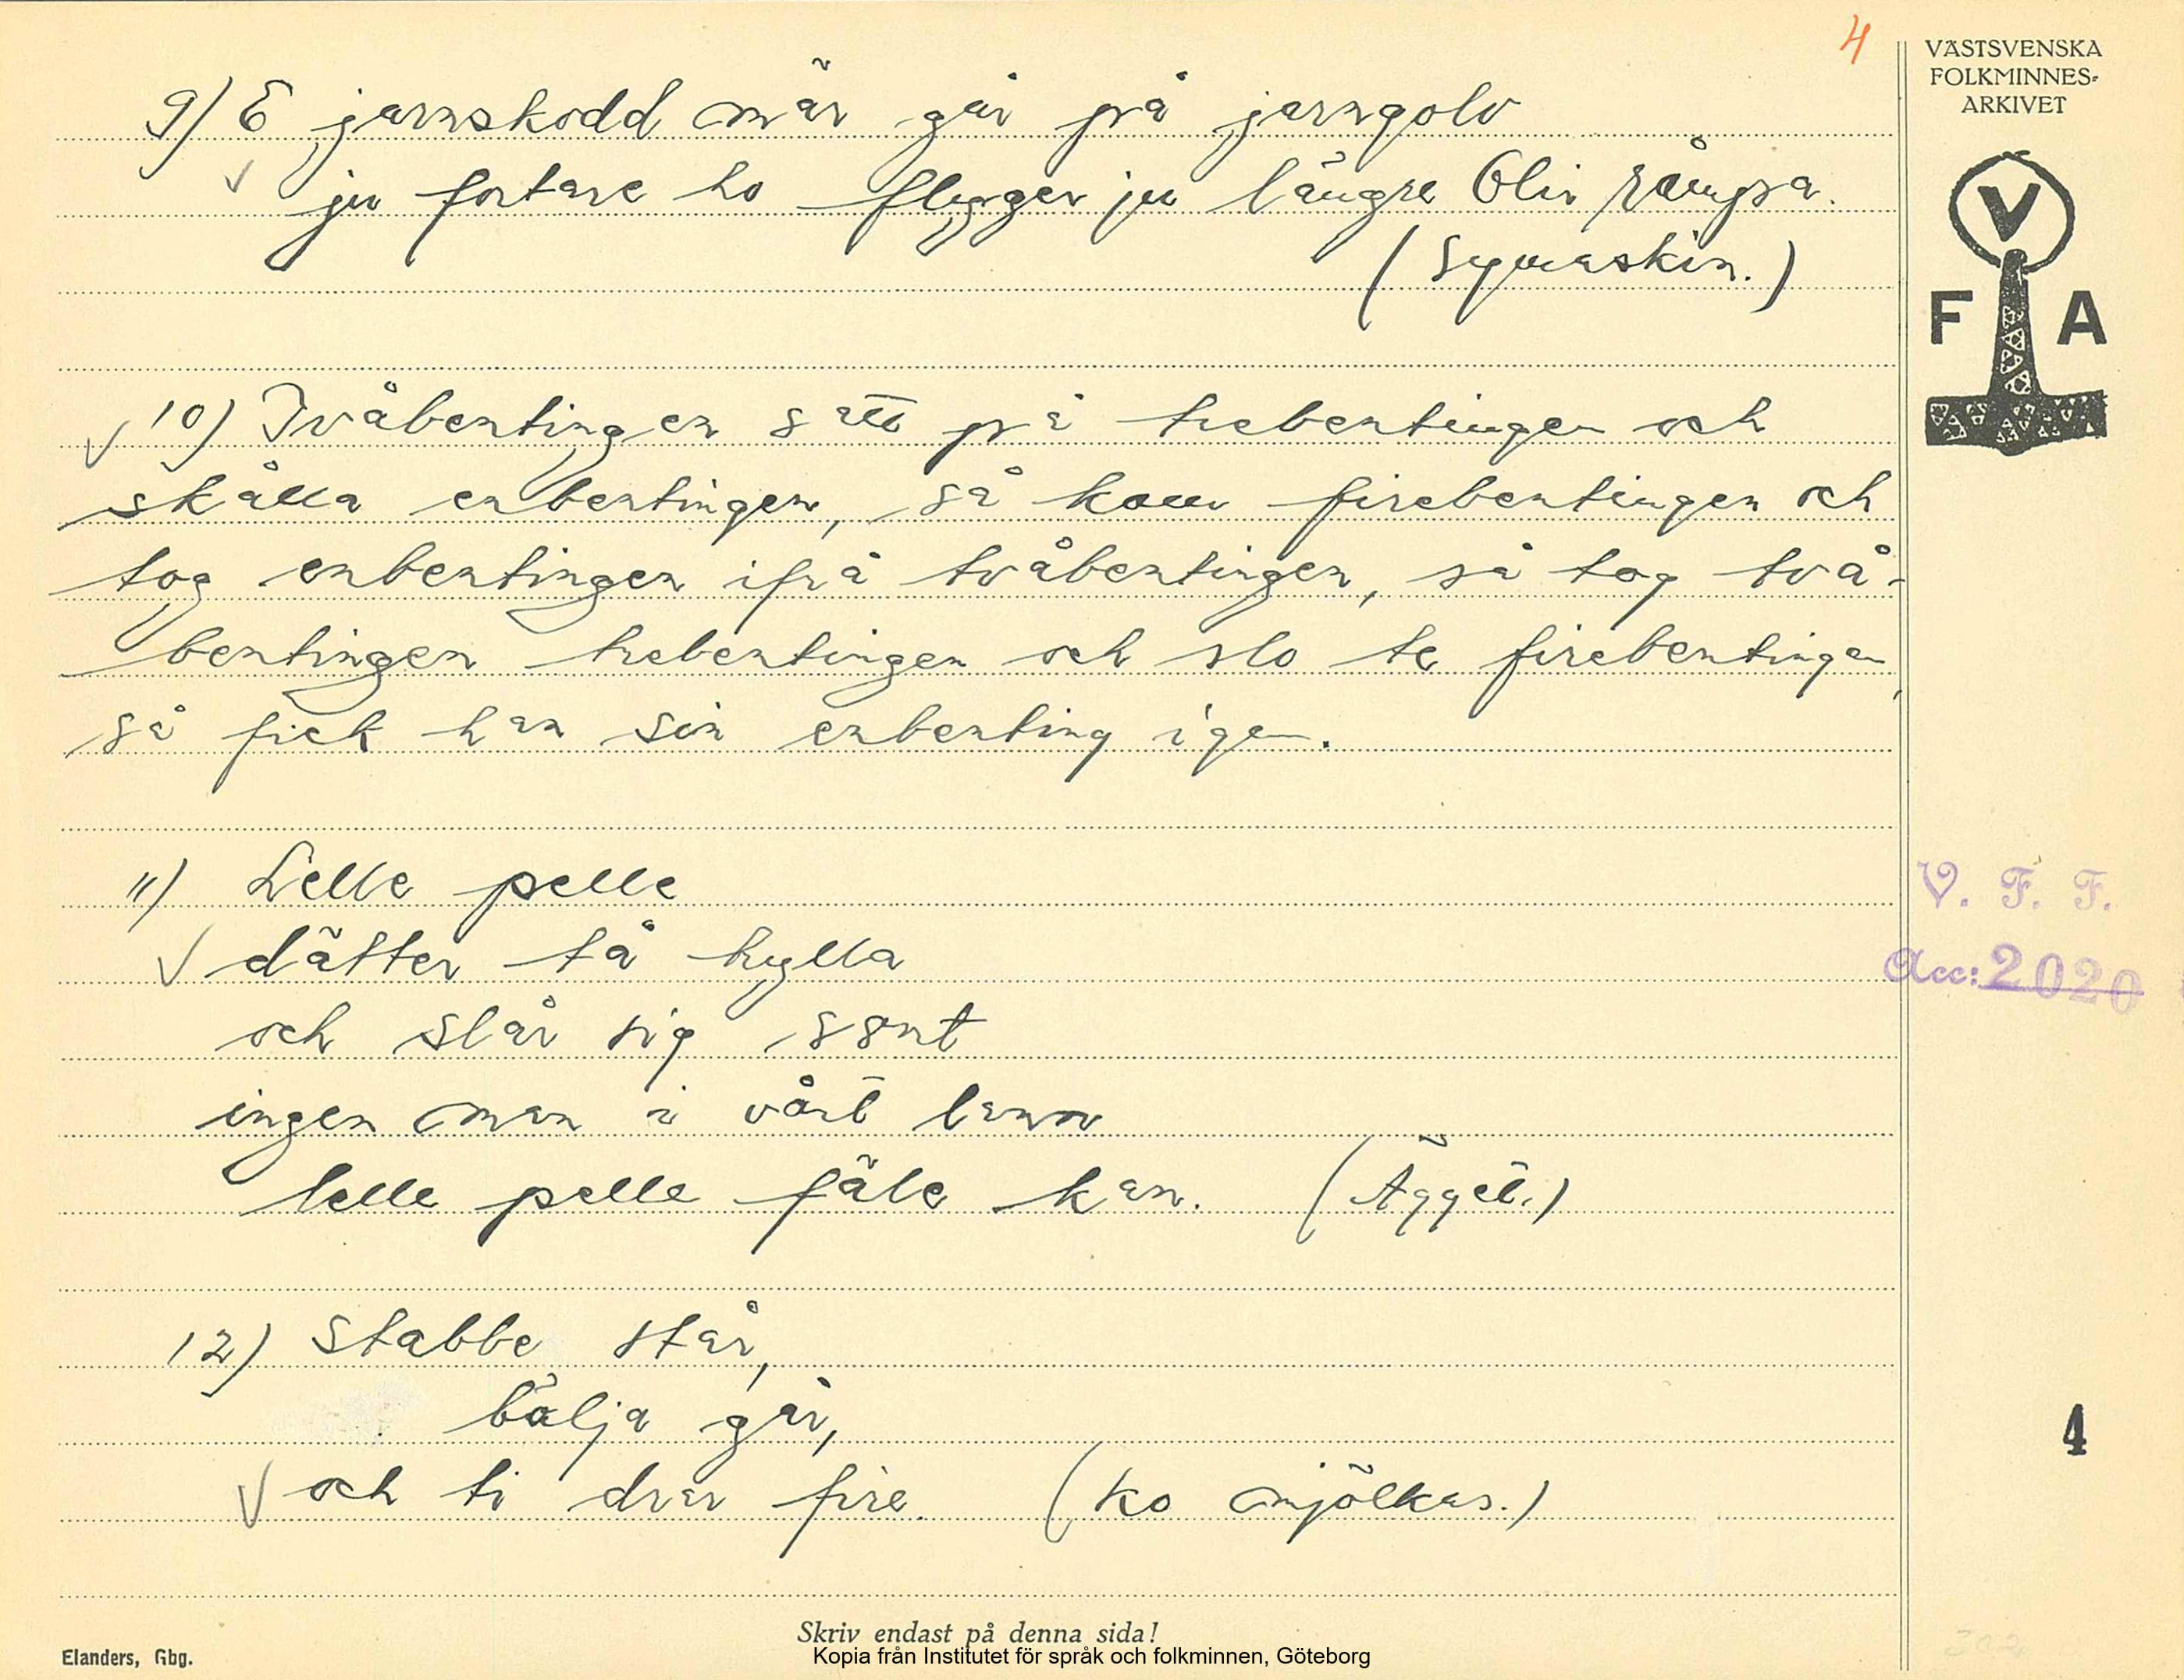 4
VÄSTSVENSKA
FOLKMINNES-
ARKIVET
V
F A
9) E jarnskodd mär går på jarngolv
ju fortare ho flyger ju längre blir råmpa.
(Symaskin.)
10) Tvåbentingen satt på trebentingen och
skålla enbentingen, så kom firebentingen och
tog enbentingen ifrå tvåbentingen, så tog två-
bentingen trebentingen och slo te firebentingen,
så fick han sin enbenting igen.
11) Lelle pelle
dätter tå hylla
och slår sig sönt
ingen man i vårt lann
lelle pelle fäle kan. (Ägget.)
V. F. F.
Acc: 2020
12) Stabbe står,
bälja går,
och ti drar fire. (Ko mjölkas.)
4
Skriv endast på denna sida!
Elanders, Gbg.
Kopia från Institutet för språk och folkminnen, Göteborg
302